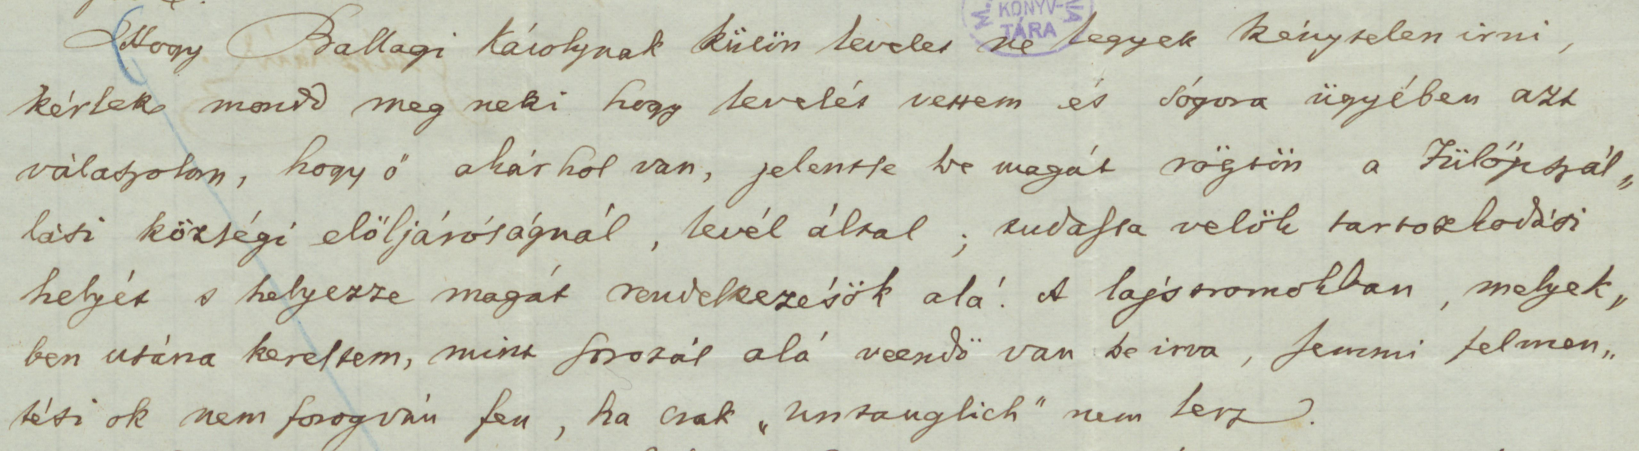 M. KÖNYVTÁRA
Hogy Ballagi Károlynak külön levelet ne legyek kénytelen irni,
kérlek mondd meg neki hogy levelét vettem és sógora ügyében azt
válaszolom, hogy ő akárhol van, jelentse be magát rögtön a Fülöpszál„
lási községi elöljáróságnál, levél által; tudassa velök tartozkodási
helyét s helyezze magát rendelkezésök alá. A lajstromokban, melyek„
ben utána kerestem, mint sorozás alá veendö van be irva, semmi felmen„
tési ok nem forogván fen, ha csak „untauglich" nem lesz.